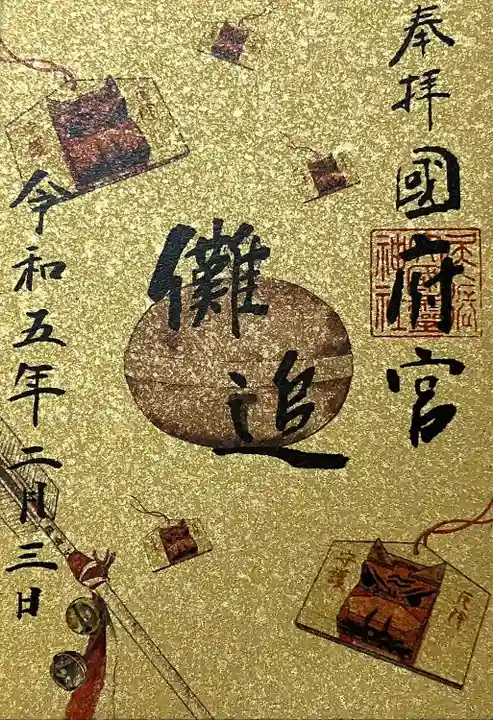 奉拝
國府宮
儺追
令和五年二月三日
守護